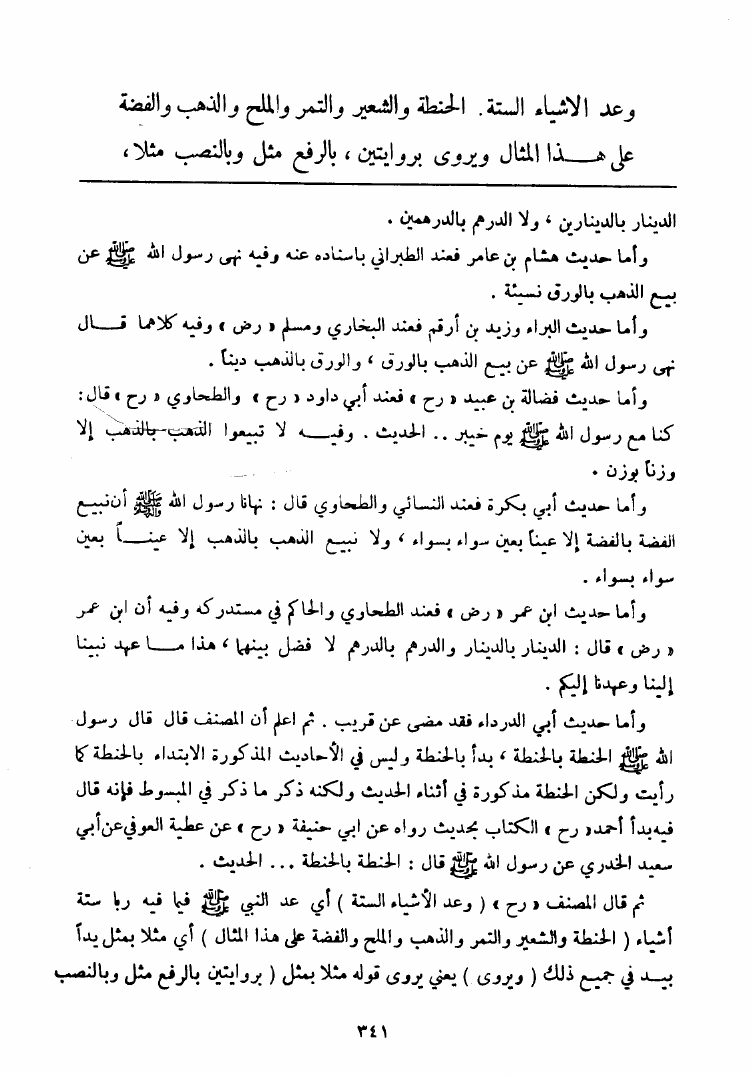 وعد الاشياء الستة . الحنطة والشعير والتمر والملح والذهب والفضة
على هـــذا المثال ويروى بروايتين ، بالرفع مثل وبالنصب مثلا ،
الدينار بالدينارين ، ولا الدرهم بالدرهمين .
وأما حديث هشام بن عامر فعند الطبراني باسناده عنه وفيه نهى رسول الله ﷺ عن
بيع الذهب بالورق نسيئة .
وأما حديث البراء وزيد بن أرقم فعند البخاري ومسلم « رض » وفيه كلاهما قـــال
نهى رسول الله ﷺ عن بيع الذهب بالورق ، والورق بالذهب ديناً .
وأما حديث فضالة بن عبيد « رح » فعند أبي داود « رح » والطحاوي « رح » قال :
كنا مع رسول الله ﷺ يوم خيبر .. الحديث . وفيـــه لا تبيعوا الذهب بالذهب إلا
وزناً بوزن .
وأما حديث أبي بكرة فعند النسائي والطحاوي قال : نهانا رسول الله ﷺ أن نبيع
الفضة بالفضة إلا عيناً بعين سواء بسواء ، ولا نبيع الذهب بالذهب إلا عينـــاً بعين
سواء بسواء .
وأما حديث ابن عمر « رض » فعند الطحاوي والحاكم في مستدركه وفيه أن ابن عمر
« رض » قال : الدينار بالدينار والدرهم بالدرهم لا فضل بينهما ، هذا مـــا عهد نبينا
إلينا وعهدنا إليكم .
وأما حديث أبي الدرداء فقد مضى عن قريب . ثم اعلم أن المصنف قال قال رسول
الله ﷺ الحنطة بالحنطة ، بدأ بالحنطة وليس في الأحاديث المذكورة الابتداء بالحنطة كما
رأيت ولكن الحنطة مذكورة في أثناء الحديث ولكنه ذكر ما ذكر في المبسوط فإنه قال
فيه بدأ أحمد « رح » الكتاب بحديث رواه عن ابي حنيفة « رح » عن عطية العوفي عن أبي
سعيد الخدري عن رسول الله ﷺ قال : الحنطة بالحنطة ... الحديث .
ثم قال المصنف « رح » ( وعد الأشياء الستة ) أي عد النبي ﷺ فيما فيه ربا ستة
أشياء ( الحنطة والشعير والتمر والذهب والملح والفضة على هذا المثال ) أي مثلا بمثل يداً
بيـــد في جميع ذلك ( ويروى ) يعني يروى قوله مثلا بمثل ( بروايتين بالرفع مثل وبالنصب
٣٤١